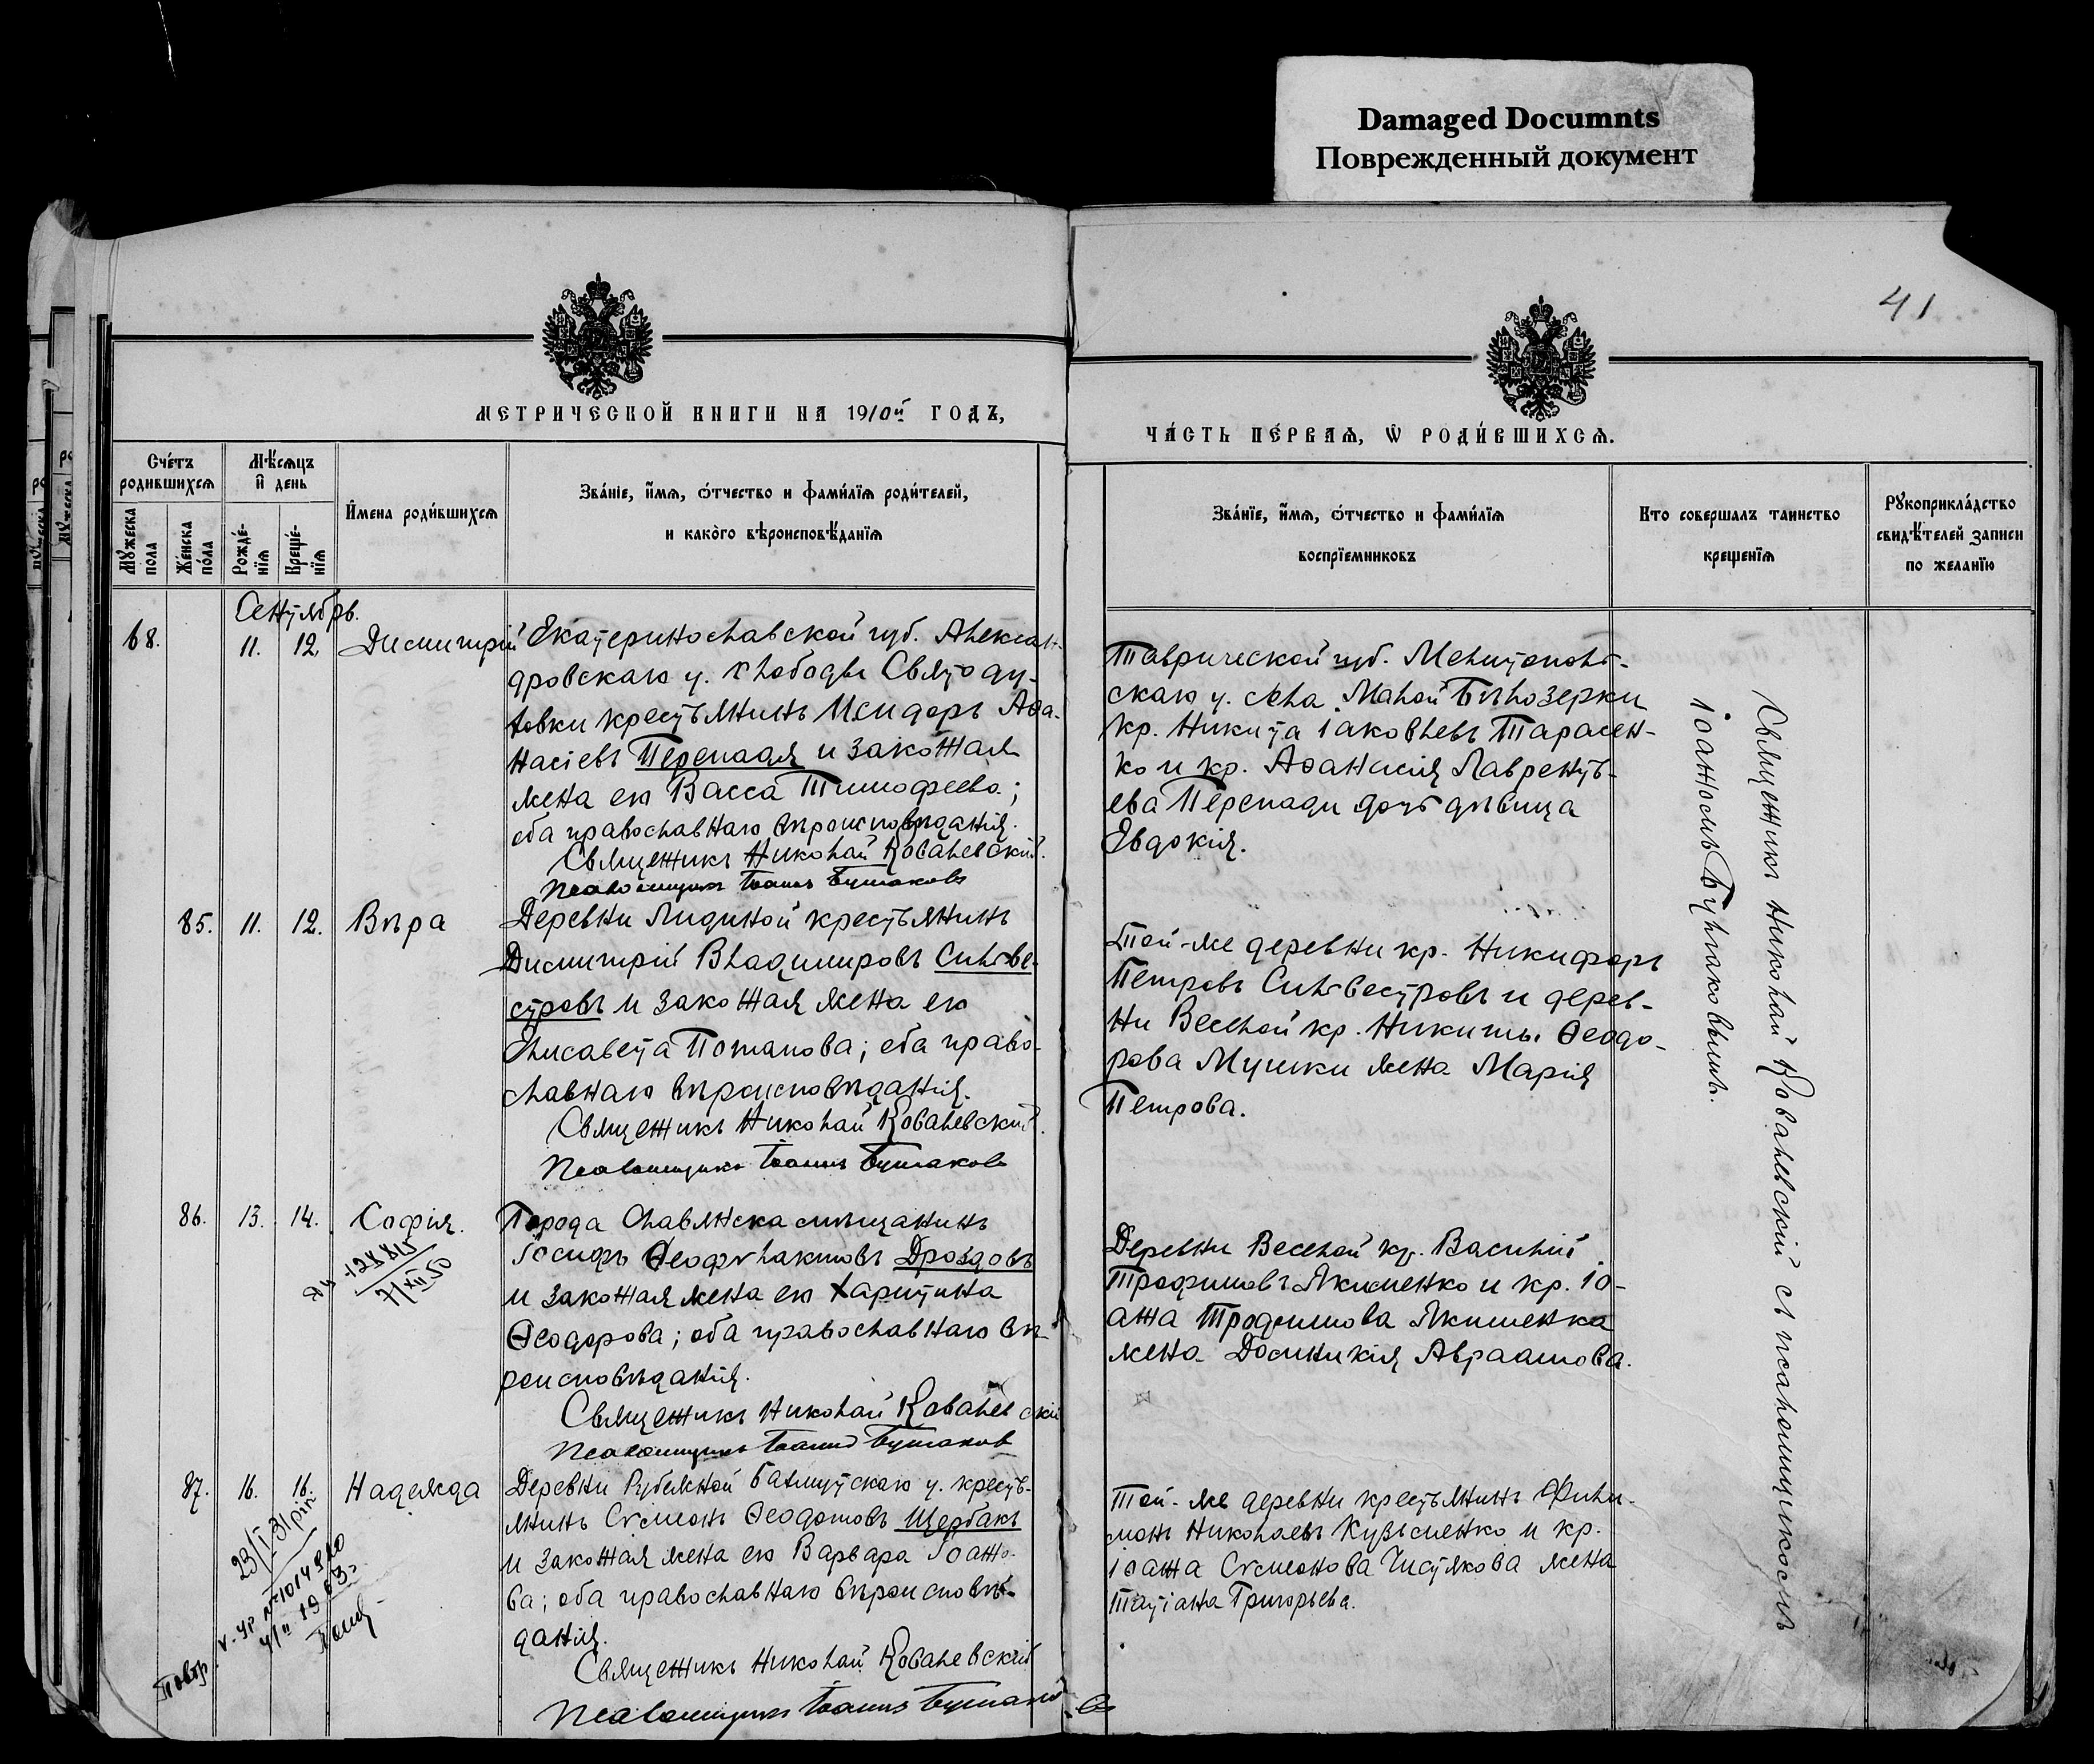 Damaged Documnts
Поврежденный документ
41
МЕТРИЧЕСКОЙ КНИГИ НА 1910й ГОДЪ,
ЧА́СТЬ ПЕ́РВАѦ, Ѽ РОДИ́ВШИХСѦ.
Сче́тъ родившихсѧ
Мѣ́сѧцъ и҆ день
Мꙋжеска пола
Же́нска по́ла
Рожде́-нїѧ
Креще́-нїѧ
И҆мена роди́вшихсѧ
Зва́нїе, и҆́мѧ, ѻ҆́тчество и фами́лїѧ роди́телей,
и како́го вѣроисповѣ́данїѧ
Зва́нїе, и҆́мѧ, ѻ҆́тчество и фами́лїѧ
воспрїемниковъ
Кто совершалъ таинство
крещенїѧ
Рꙋкоприкла́дство
свидѣ́телей записи
по желанїю
Сентябрь.
68. 11. 12. Димитрій
Екатеринославской губ. Алексан-
дровскаго у. слободы Святоду-
ховки крестьянинъ Исидоръ Аѳа-
насіевъ Перепадя и законная
жена его Васса Тимофеева;
оба православнаго вѣроисповѣданія.
Священникъ Николай Ковалевскій.
Псаломщикъ Іоаннъ Бутаковъ
Таврической губ. Мелитополь-
скаго у. села Малой Бѣлозерки
кр. Никита Іаковлевъ Тарасен-
ко и кр. Аѳанасія Лавренть-
ева Перепади дочь дѣвица
Евдокія.
85. 11. 12. Вѣра
Деревни Лидиной крестьянинъ
Димитрій Владимировъ Сильве-
стровъ и законная жена его
Елисавета Потапова; оба право-
славнаго вѣроисповѣданія.
Священникъ Николай Ковалевскій.
Псаломщикъ Іоаннъ Бутаковъ
Той-же деревни кр. Никифоръ
Петровъ Сильвестровъ и дерев-
ни Веселой кр. Никиты Ѳеодо-
рова Мушки жена Марія
Петрова.
86. 13. 14. Софія.
128815
7/XII 50
Города Славянска мѣщанинъ
Іосифъ Ѳеофилактовъ Дроздовъ
и законная жена его Харитина
Ѳеодорова; оба православнаго вѣ-
роисповѣданія.
Священникъ Николай Ковалевскій
Псаломщикъ Іоаннъ Бутаков
Деревни Веселой кр. Василій
Трофимовъ Якименко и кр. Іо-
анна Трофимова Якименка
жена Домникія Авраамова.
87. 16. 16. Надежда
23/I 31
№1014910
4/II 1963
Повтор
Деревни Рубежной Бахмутскаго у. кресть-
янинъ Сѵмеонъ Ѳеодотовъ Щербакъ
и законная жена его Варвара Іоанно-
ва; оба православнаго вѣроисповѣ-
данія.
Священникъ Николай Ковалевскій
Псаломщикъ Іоаннъ Бутаковъ
Той-же деревни крестьянинъ Фили-
монъ Николаевъ Кузьменко и кр.
Іоанна Сѵмеонова Чистякова жена
Татіана Григорьева.
Священникъ Николай Ковалевскій съ псаломщикомъ
Іоанномъ Бутаковымъ.